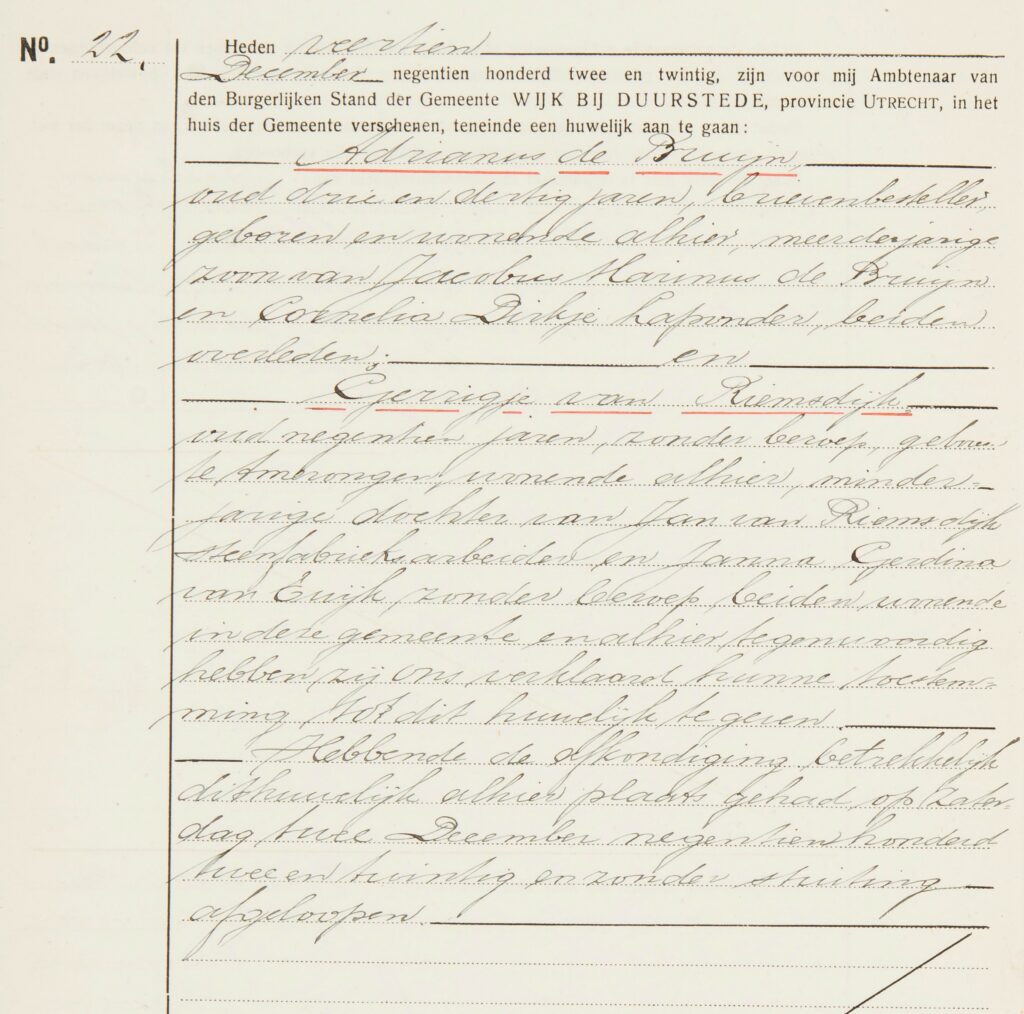 No. 22.
Heden veertien
December negentien honderd twee en twintig, zijn voor mij Ambtenaar van
den Burgerlijken Stand der Gemeente WIJK BIJ DUURSTEDE, provincie UTRECHT, in het
huis der Gemeente verschenen, teneinde een huwelijk aan te gaan:
Adrianus de Bruijn,
oud drie en dertig jaren, brievenbesteller,
geboren en wonende alhier, meerderjarige
zoon van Jacobus Marinus de Bruijn
en Cornelia Dirkje, beiden
overleden; en
Gerrigje van Riemsdijk,
oud negentien jaren, zonder beroep, geboren
te Amerongen, wonende alhier, minder-
jarige dochter van Jan van Riemsdijk
steenfabrieksarbeider en Janna Gerdina
van Ewijk, zonder beroep, beiden wonende
in deze gemeente en alhier tegenwoordig
hebben zij ons verklaard hunne toestem-
ming tot dit huwelijk te geven.
Hebbende de afkondiging betrekkelijk
dit huwelijk alhier plaats gehad op Zater-
dag twee December negentien honderd
twee en twintig en zonder stuiting
afgeloopen.